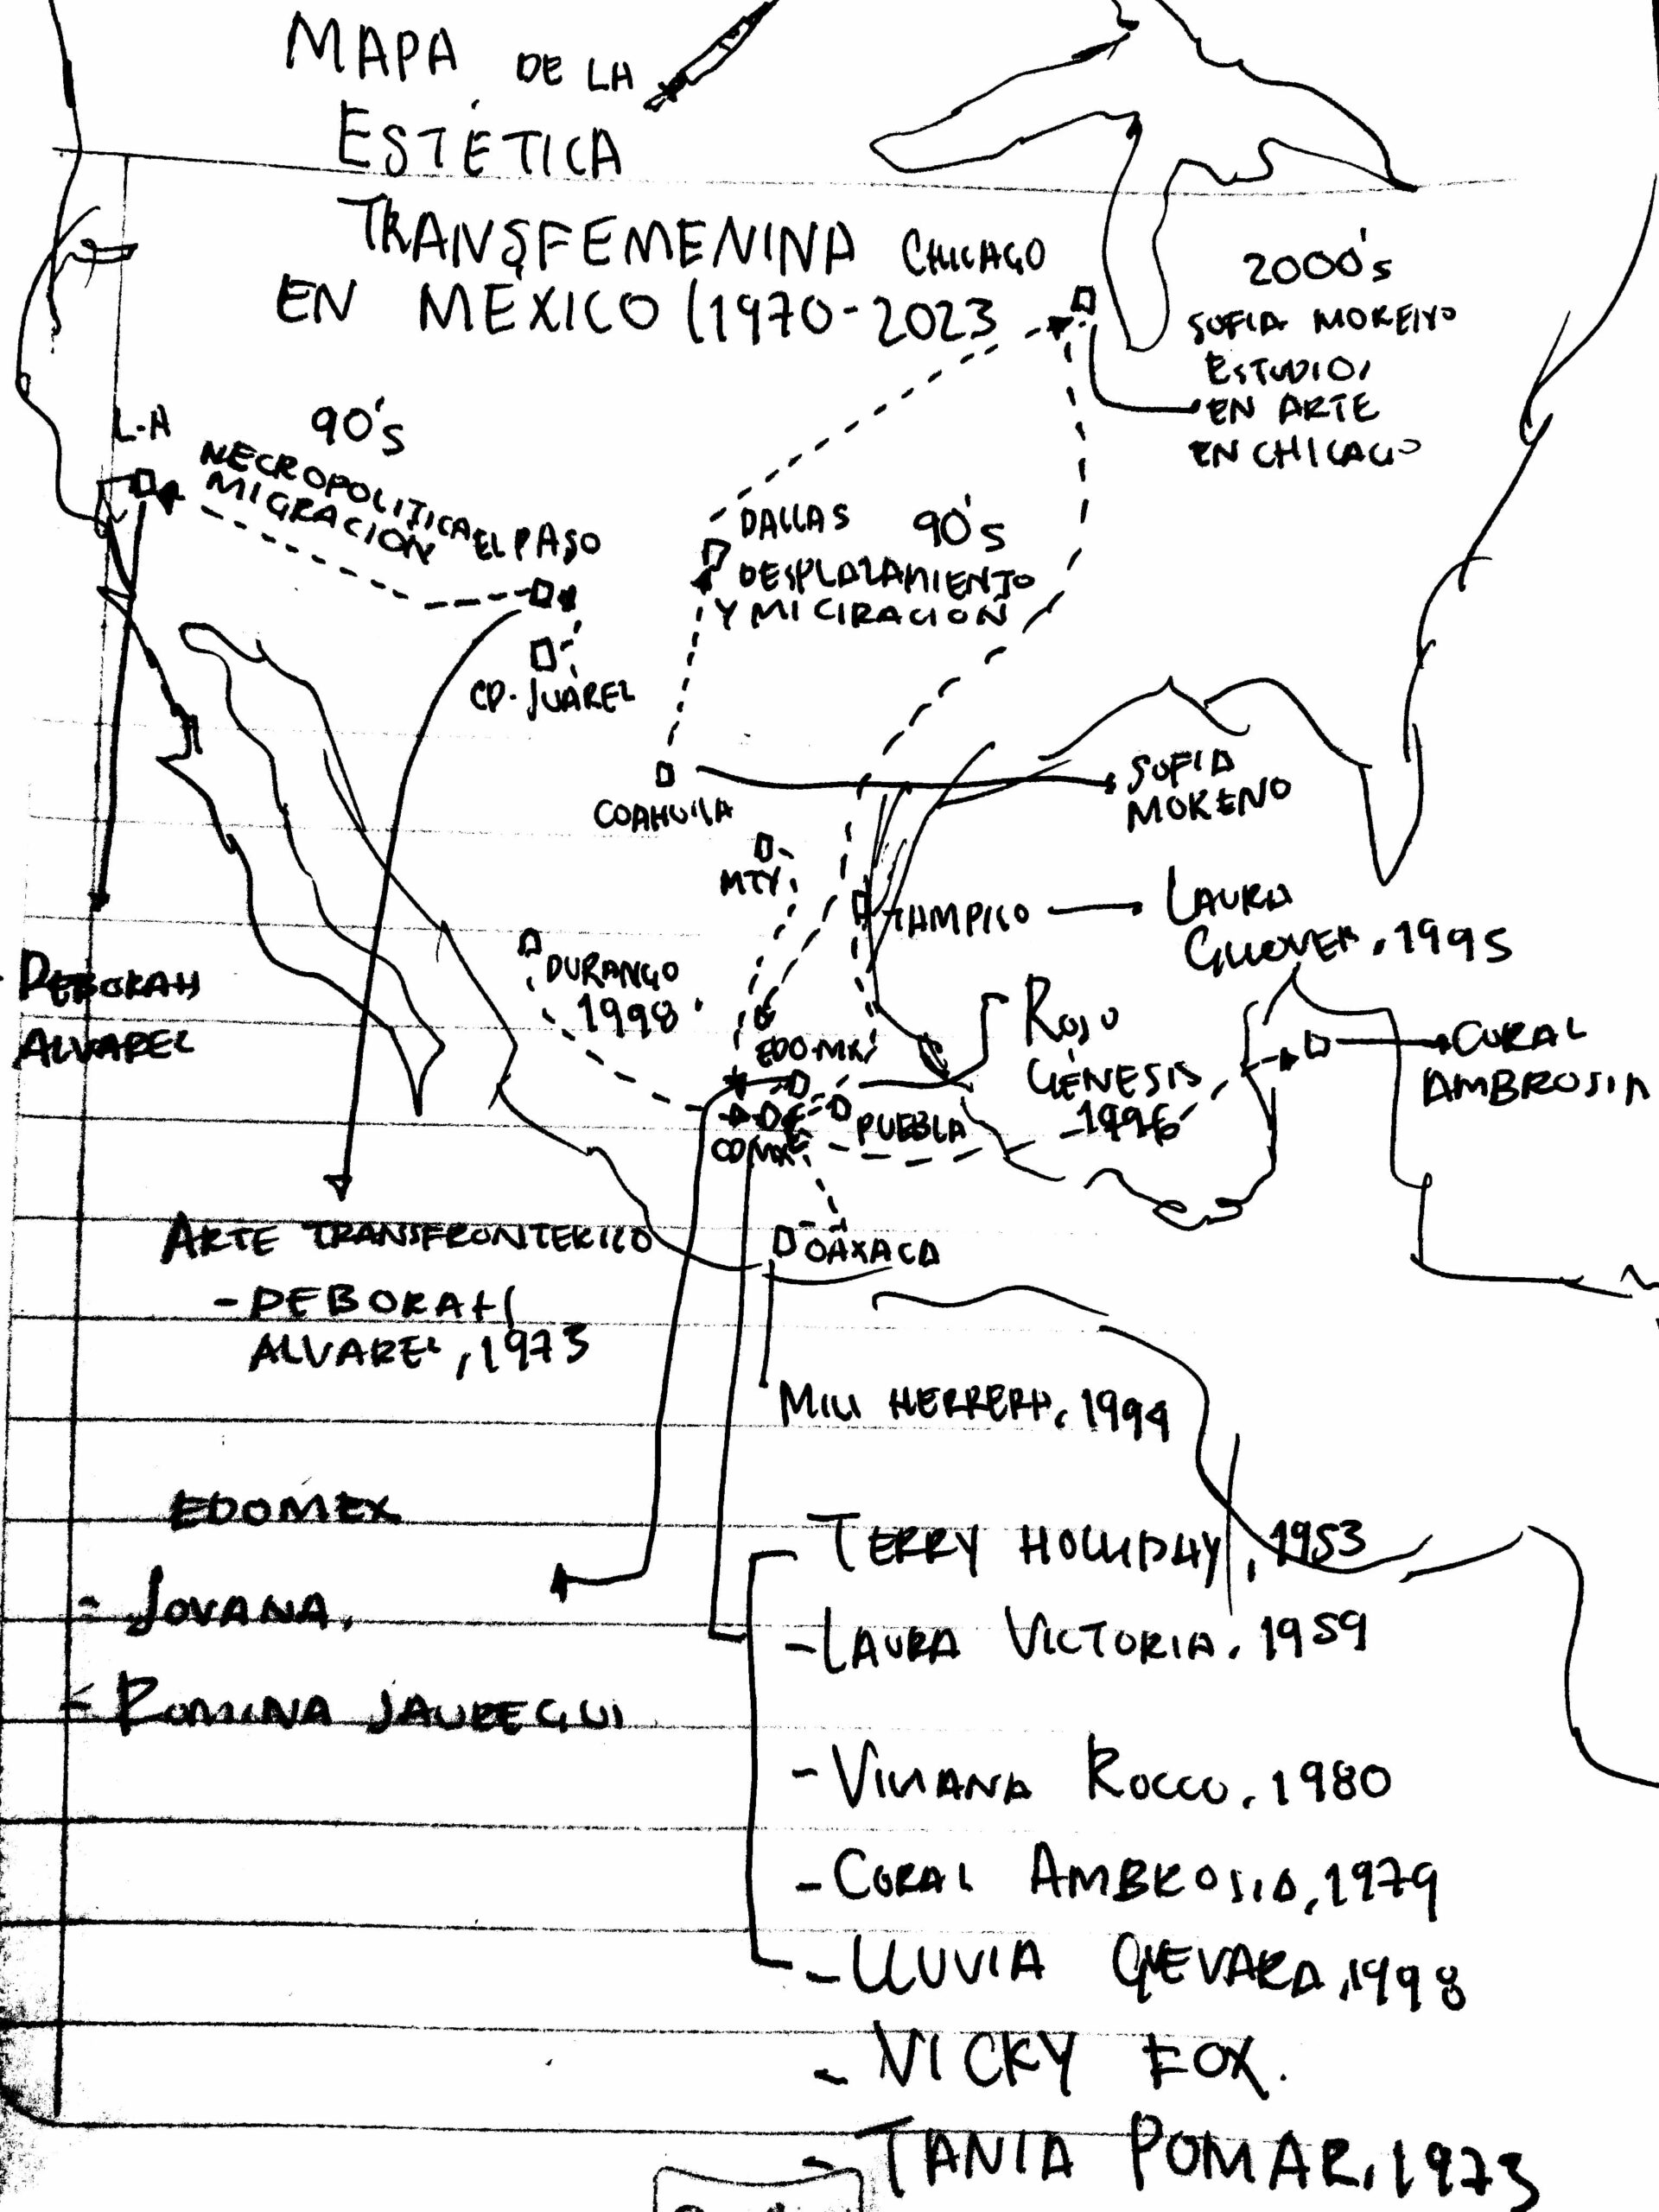 MAPA DE LA
ESTÉTICA
TRANSFEMENINA
EN MÉXICO (1970-2023
CHICAGO
2000's
SOFIA MORENO
ESTUDIOS
EN ARTE
EN CHICAGO
L.A
90's
NECROPOLITICA
MIGRACIÓN
EL PASO
DALLAS
90's
DESPLAZAMIENTO
Y MIGRACIÓN
CD. JUÁREZ
COAHUILA
SOFIA
MORENO
MTY
TAMPICO
LAURA
GLOVER, 1995
DURANGO
1998
DEBORAH
ALVAREZ
EDO.MX
ROJO
GÉNESIS
1996
CORAL
AMBROSIA
PUEBLA
CDMX
OAXACA
ARTE TRANSFRONTERIZO
- DEBORAH
ALVAREZ, 1973
MILI HERRERA, 1994
EDOMEX
- JOVANA,
- ROMINA JAUREGUI
TERRY HOLLIDAY, 1953
- LAURA VICTORIA, 1959
- VIVIANA ROCCO, 1980
- CORAL AMBROSIA, 1979
- LLUVIA GUEVARA, 1998
- VICKY FOX.
- TANIA POMAR, 1973